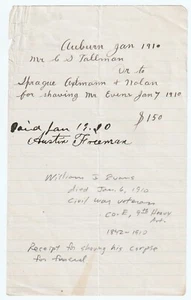 Auburn Jan 1910
Mr C S Tallman
Dr to
Sprague Aylmann & Nolan
for shaving Mr Evens Jan 7 1910
$1 50
Paid Jan 19.
Austin Freeman
William J Evans
died Jan. 6, 1910
Civil War veteran
Co. E, 9th Heavy
Art.
1842-1910
Receipt for shaving his corpse
for funeral